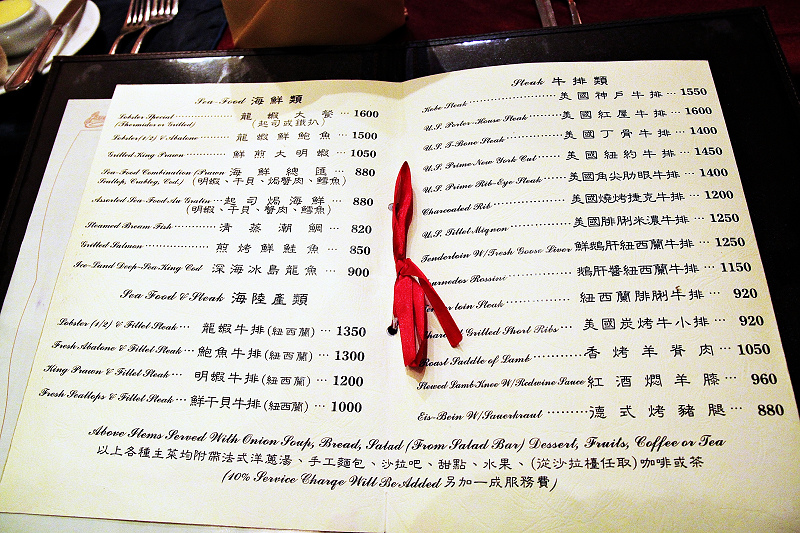 Sea-Food 海鮮類
Lobster Special 龍蝦大餐 1600
(Thermidor or Grilled) (起司或鐵扒)
Lobster (1/2) & Abalone 龍蝦鮮鮑魚 1500
Grilled King Prawn 鮮煎大明蝦 1050
Sea-Food Combination (Prawn 海鮮總匯 880
Scallop, Crableg, Cod.) (明蝦、干貝、焗蟹肉、鱈魚)
Assorted Sea-Food Au Gratin 起司焗海鮮 880
(明蝦、干貝、蟹肉、鱈魚)
Steamed Bream Fish 清蒸潮鯛 820
Grilled Salmon 煎烤鮮鮭魚 850
Ice-Land Deep-Sea King Cod 深海冰島龍魚 900
Sea Food & Steak 海陸產類
Lobster (1/2) & Fillet Steak 龍蝦牛排(紐西蘭) 1350
Fresh Abalone & Fillet Steak 鮑魚牛排(紐西蘭) 1300
King Prawn & Fillet Steak 明蝦牛排(紐西蘭) 1200
Fresh Scallops & Fillet Steak 鮮干貝牛排(紐西蘭) 1000
Steak 牛排類
Kobe Steak 美國神戶牛排 1550
U.S. Porter-House Steak 美國紅屋牛排 1600
U.S. T-Bone Steak 美國丁骨牛排 1400
U.S. Prime New York Cut 美國紐約牛排 1450
U.S. Prime Rib-Eye Steak 美國角尖肋眼牛排 1400
Charcoaled Rib 美國燒烤捷克牛排 1200
U.S. Fillet Mignon 美國腓脷米濃牛排 1250
Tenderloin W/Fresh Goose Liver 鮮鵝肝紐西蘭牛排 1250
Tournedos Rossini 鵝肝醬紐西蘭牛排 1150
loin Steak 紐西蘭腓脷牛排 920
Grilled Short Ribs 美國炭烤牛小排 920
Roast Saddle of Lamb 香烤羊脊肉 1050
Stewed Lamb Knee W/Redwine Sauce 紅酒燜羊膝 960
Eis-Bein W/Sauerkraut 德式烤豬腿 880
Above Items Served With Onion Soup, Bread, Salad (From Salad Bar) Dessert, Fruits, Coffee or Tea
以上各種主菜均附帶法式洋蔥湯、手工麵包、沙拉吧、甜點、水果、(從沙拉檯任取)咖啡或茶
(10% Service Charge Will Be Added 另加一成服務費)